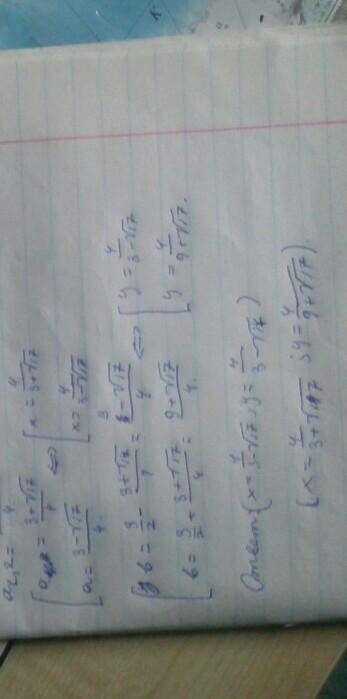 a₁,₂ = ‾/4
[ a = (3+√17)/4 ⇔ [ x = 4/(3+√17)
[ a = (3-√17)/4. [ x = 4/(3-√17)
[ b = 3/2 - (3+√17)/4 = (3-√17)/4 ⇔ [ y = 4/(3-√17)
[ b = 3/2 + (3+√17)/4 = (9+√17)/4. [ y = 4/(9+√17).
Ответ {x = 4/(3-√17); y = 4/(3-√17)}
{x = 4/(3+√17); y = 4/(9+√17)}.